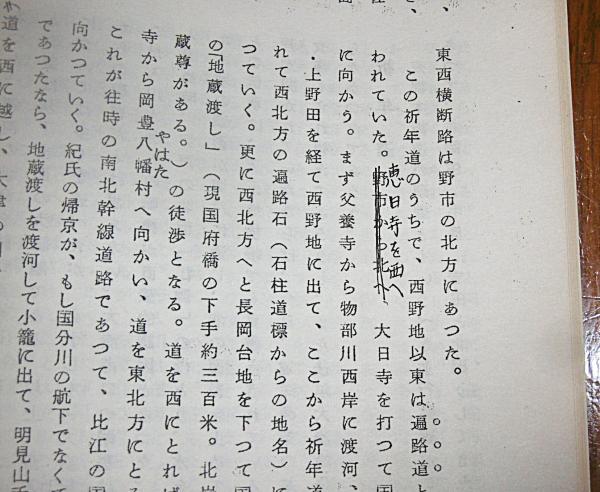 東西横断路は野市の北方にあつた。
この祈年道のうちで、西野地以東は遍路道と
われていた。野市から北へ、大日寺を打つて国
恵日寺を西へ
に向かう。まず父養寺から物部川西岸に渡河、
・上野田を経て西野地に出て、ここから祈年道
れて西北方の遍路石(石柱道標からの地名)に
つていく。更に西北方へと長岡台地を下つて国
の「地蔵渡し」(現国府橋の下手約三百米。北岸
蔵尊がある。)の徒渉となる。道を西にとれば
やはた
寺から岡豊八幡村へ向かい、道を東北方にとる
これが往時の南北幹線道路であつて、比江の国
向かつていく。紀氏の帰京が、もし国分川の航下でなくて
であつたなら、地蔵渡しを渡河して小籠に出て、明見山千
や道を西に越し、大津の